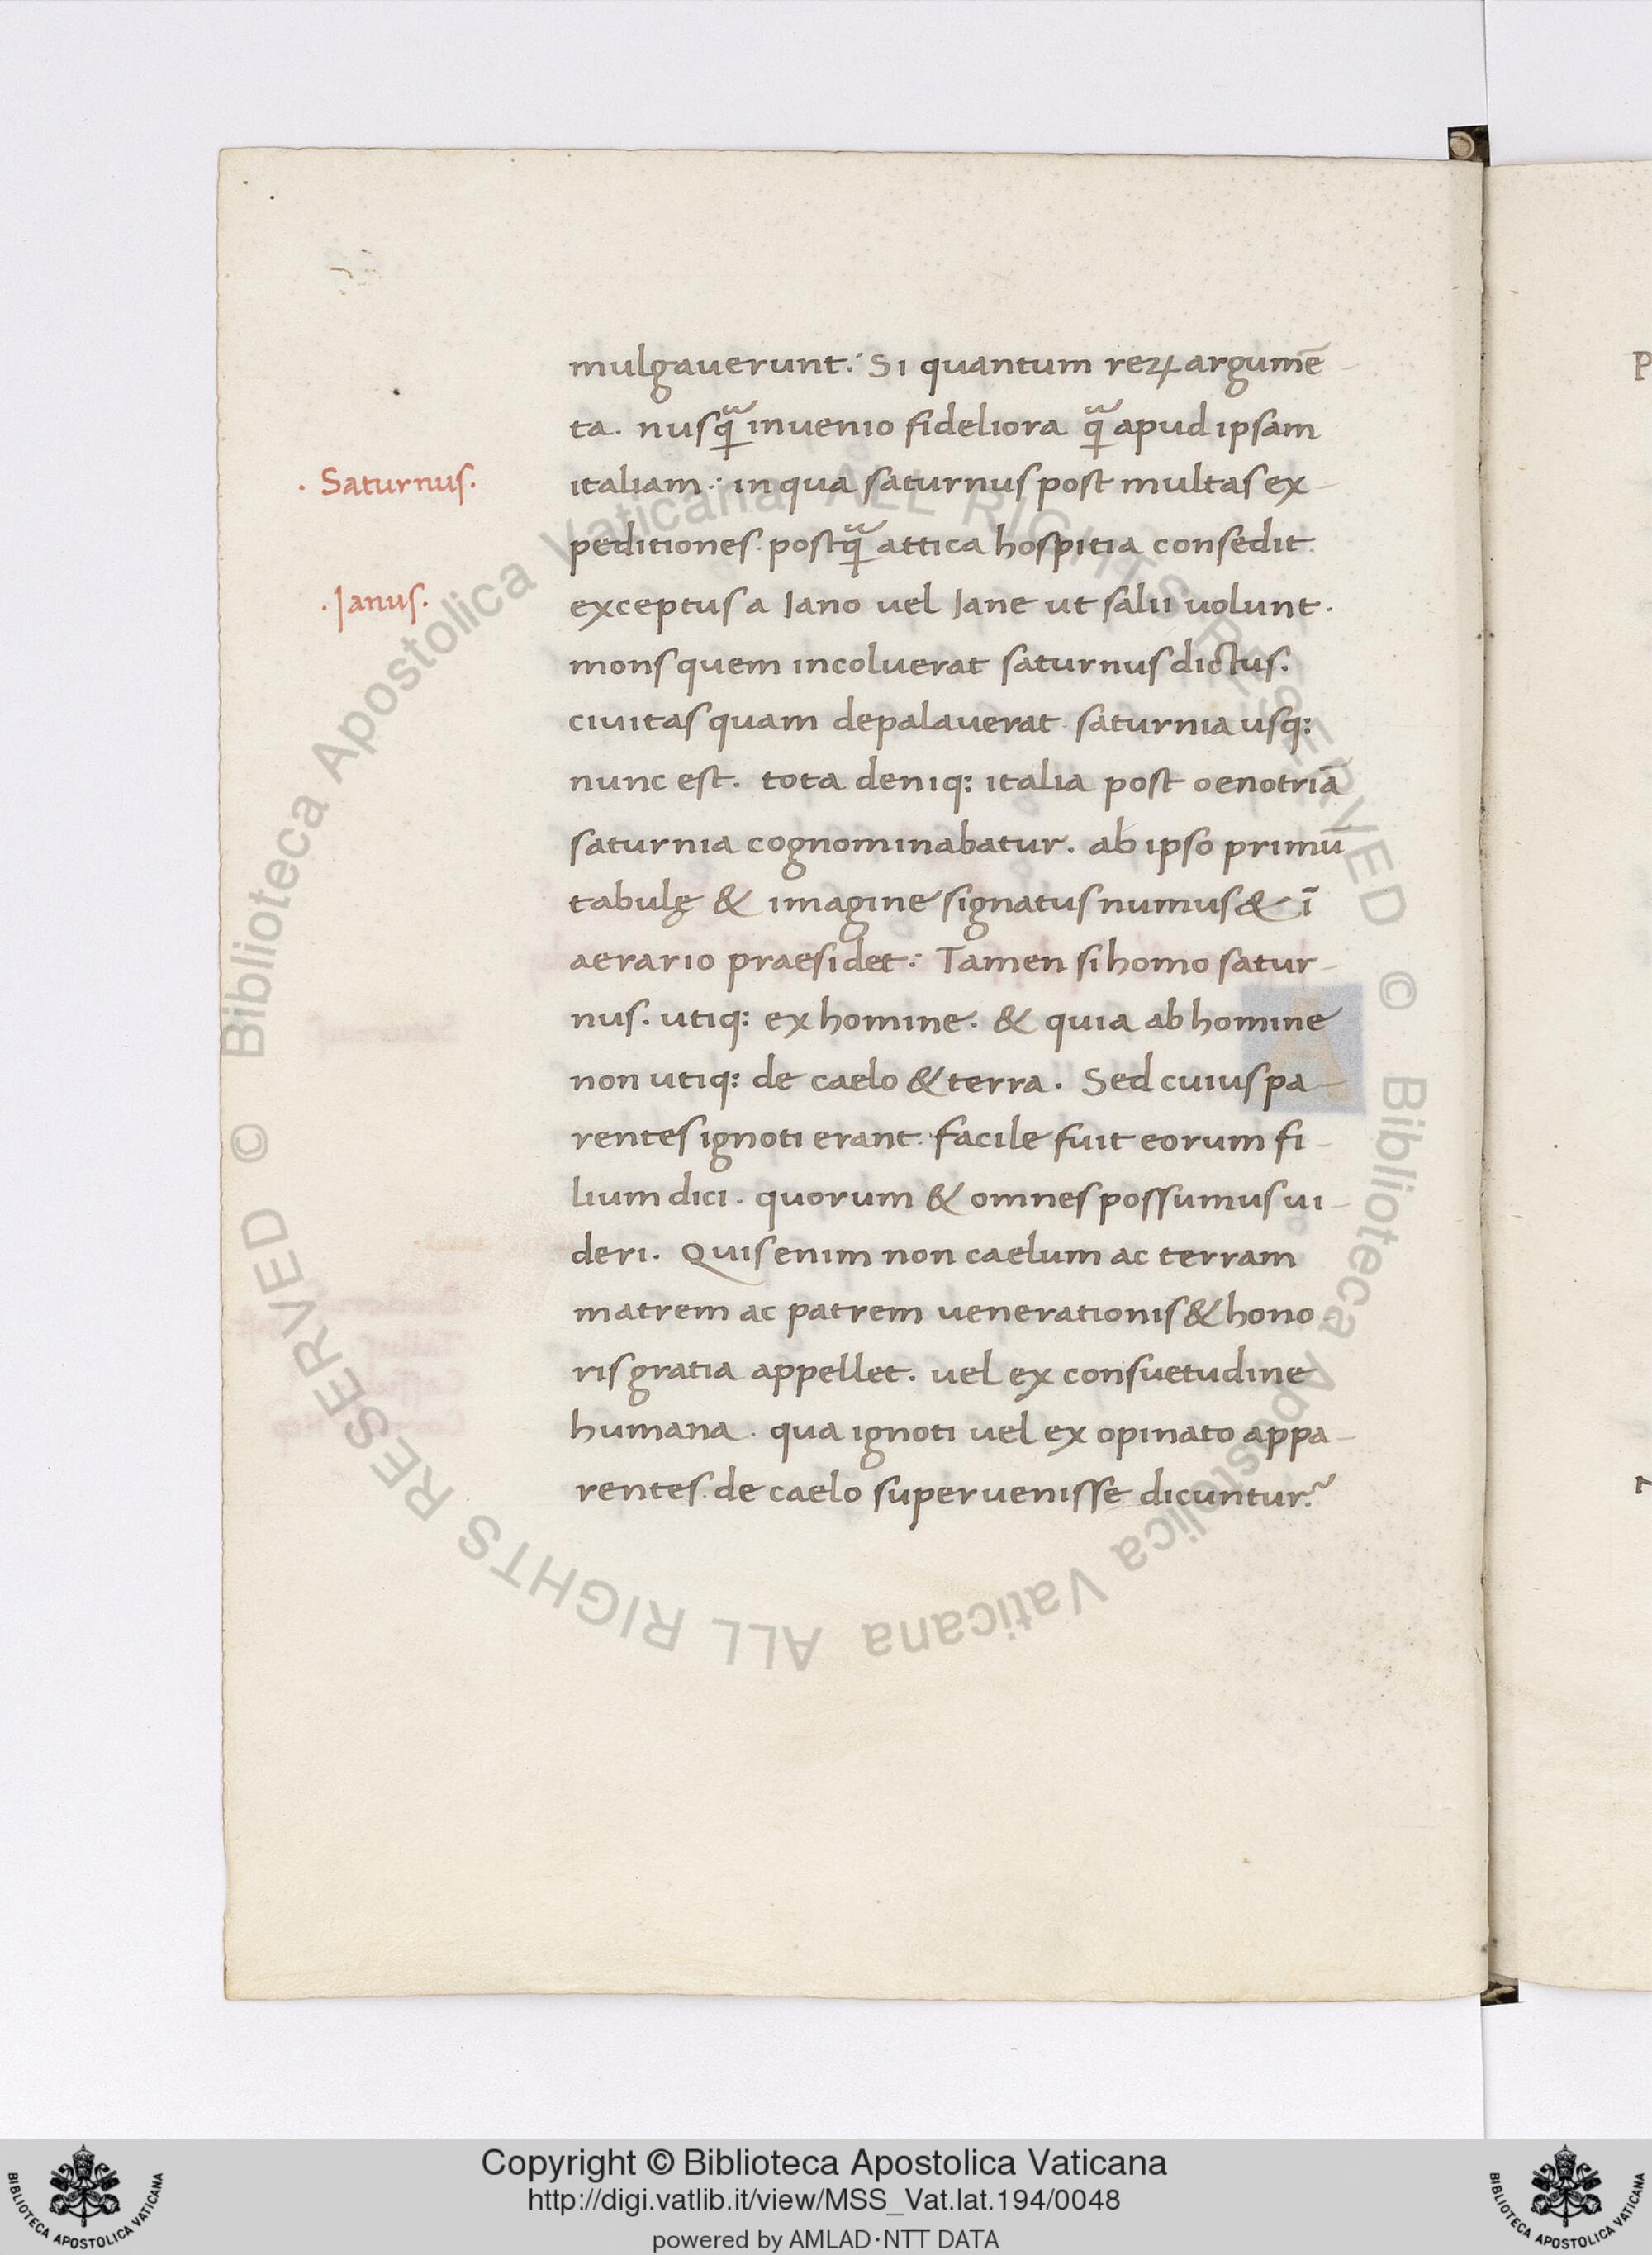 mulgauerunt. Si quantum reꝝ argumē
ta. nusꝗᷓ inuenio fideliora ꝗᷓ apud ipsam
· Saturnus.
italiam: in qua saturnus post multas ex-
peditiones. postꝗᷓ attica hospitia consedit.
· Janus.
exceptus a Iano uel Iane ut salii uolunt.
mons quem incoluerat saturnus dictus.
ciuitas quam depalauerat. saturnia usq:
nunc est. tota deniq: italia post oenotriā
saturnia cognominabatur. ab ipso primū
tabulę & imagine signatus numus & ī
aerario praesidet: Tamen si homo satur-
nus. utiq: ex homine. & quia ab homine
non utiq: de caelo & terra. Sed cuius pa-
rentes ignoti erant. facile fuit eorum fi-
lium dici. quorum & omnes possumus ui-
deri. Quis enim non caelum ac terram
matrem ac patrem uenerationis & hono
ris gratia appellet. uel ex consuetudine
humana. qua ignoti uel ex opinato appa-
rentes. de caelo superuenisse dicuntur.
© Biblioteca Apostolica Vaticana ALL RIGHTS RESERVED
© Biblioteca Apostolica Vaticana ALL RIGHTS RESERVED
Copyright © Biblioteca Apostolica Vaticana
http://digi.vatlib.it/view/MSS_Vat.lat.194/0048
powered by AMLAD·NTT DATA
BIBLIOTECA APOSTOLICA VATICANA
BIBLIOTECA APOSTOLICA VATICANA